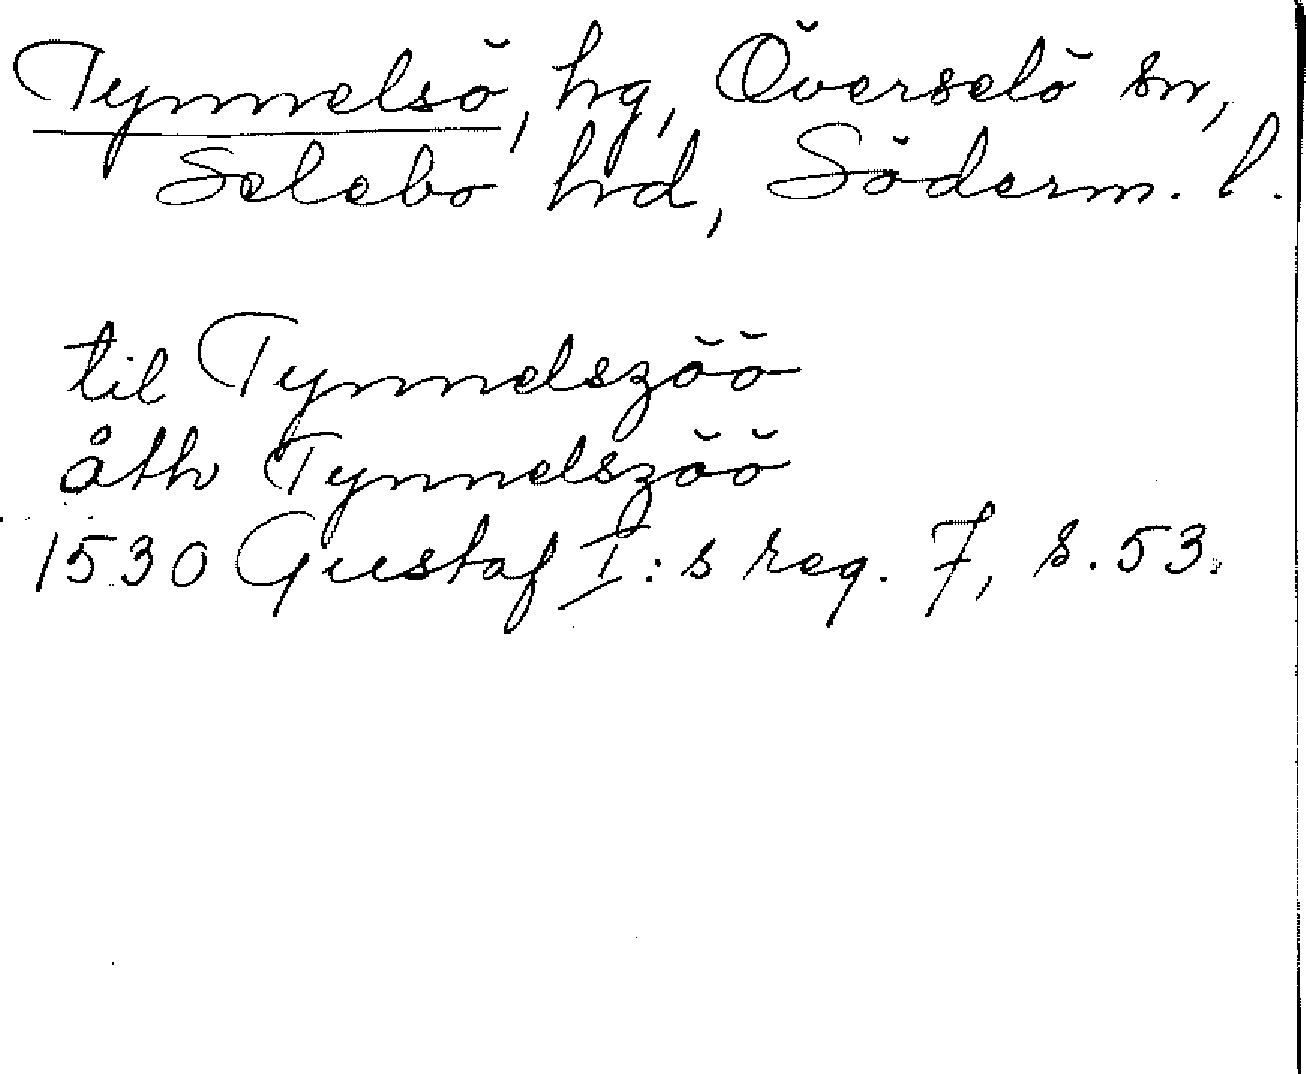 Tynnelsö, hg, Överselö sn,
Selebo hd, Söderm. l.
til Tynnelszöö
åth Tynnelszöö
1530 Gustaf I:s reg. 7, s. 53.